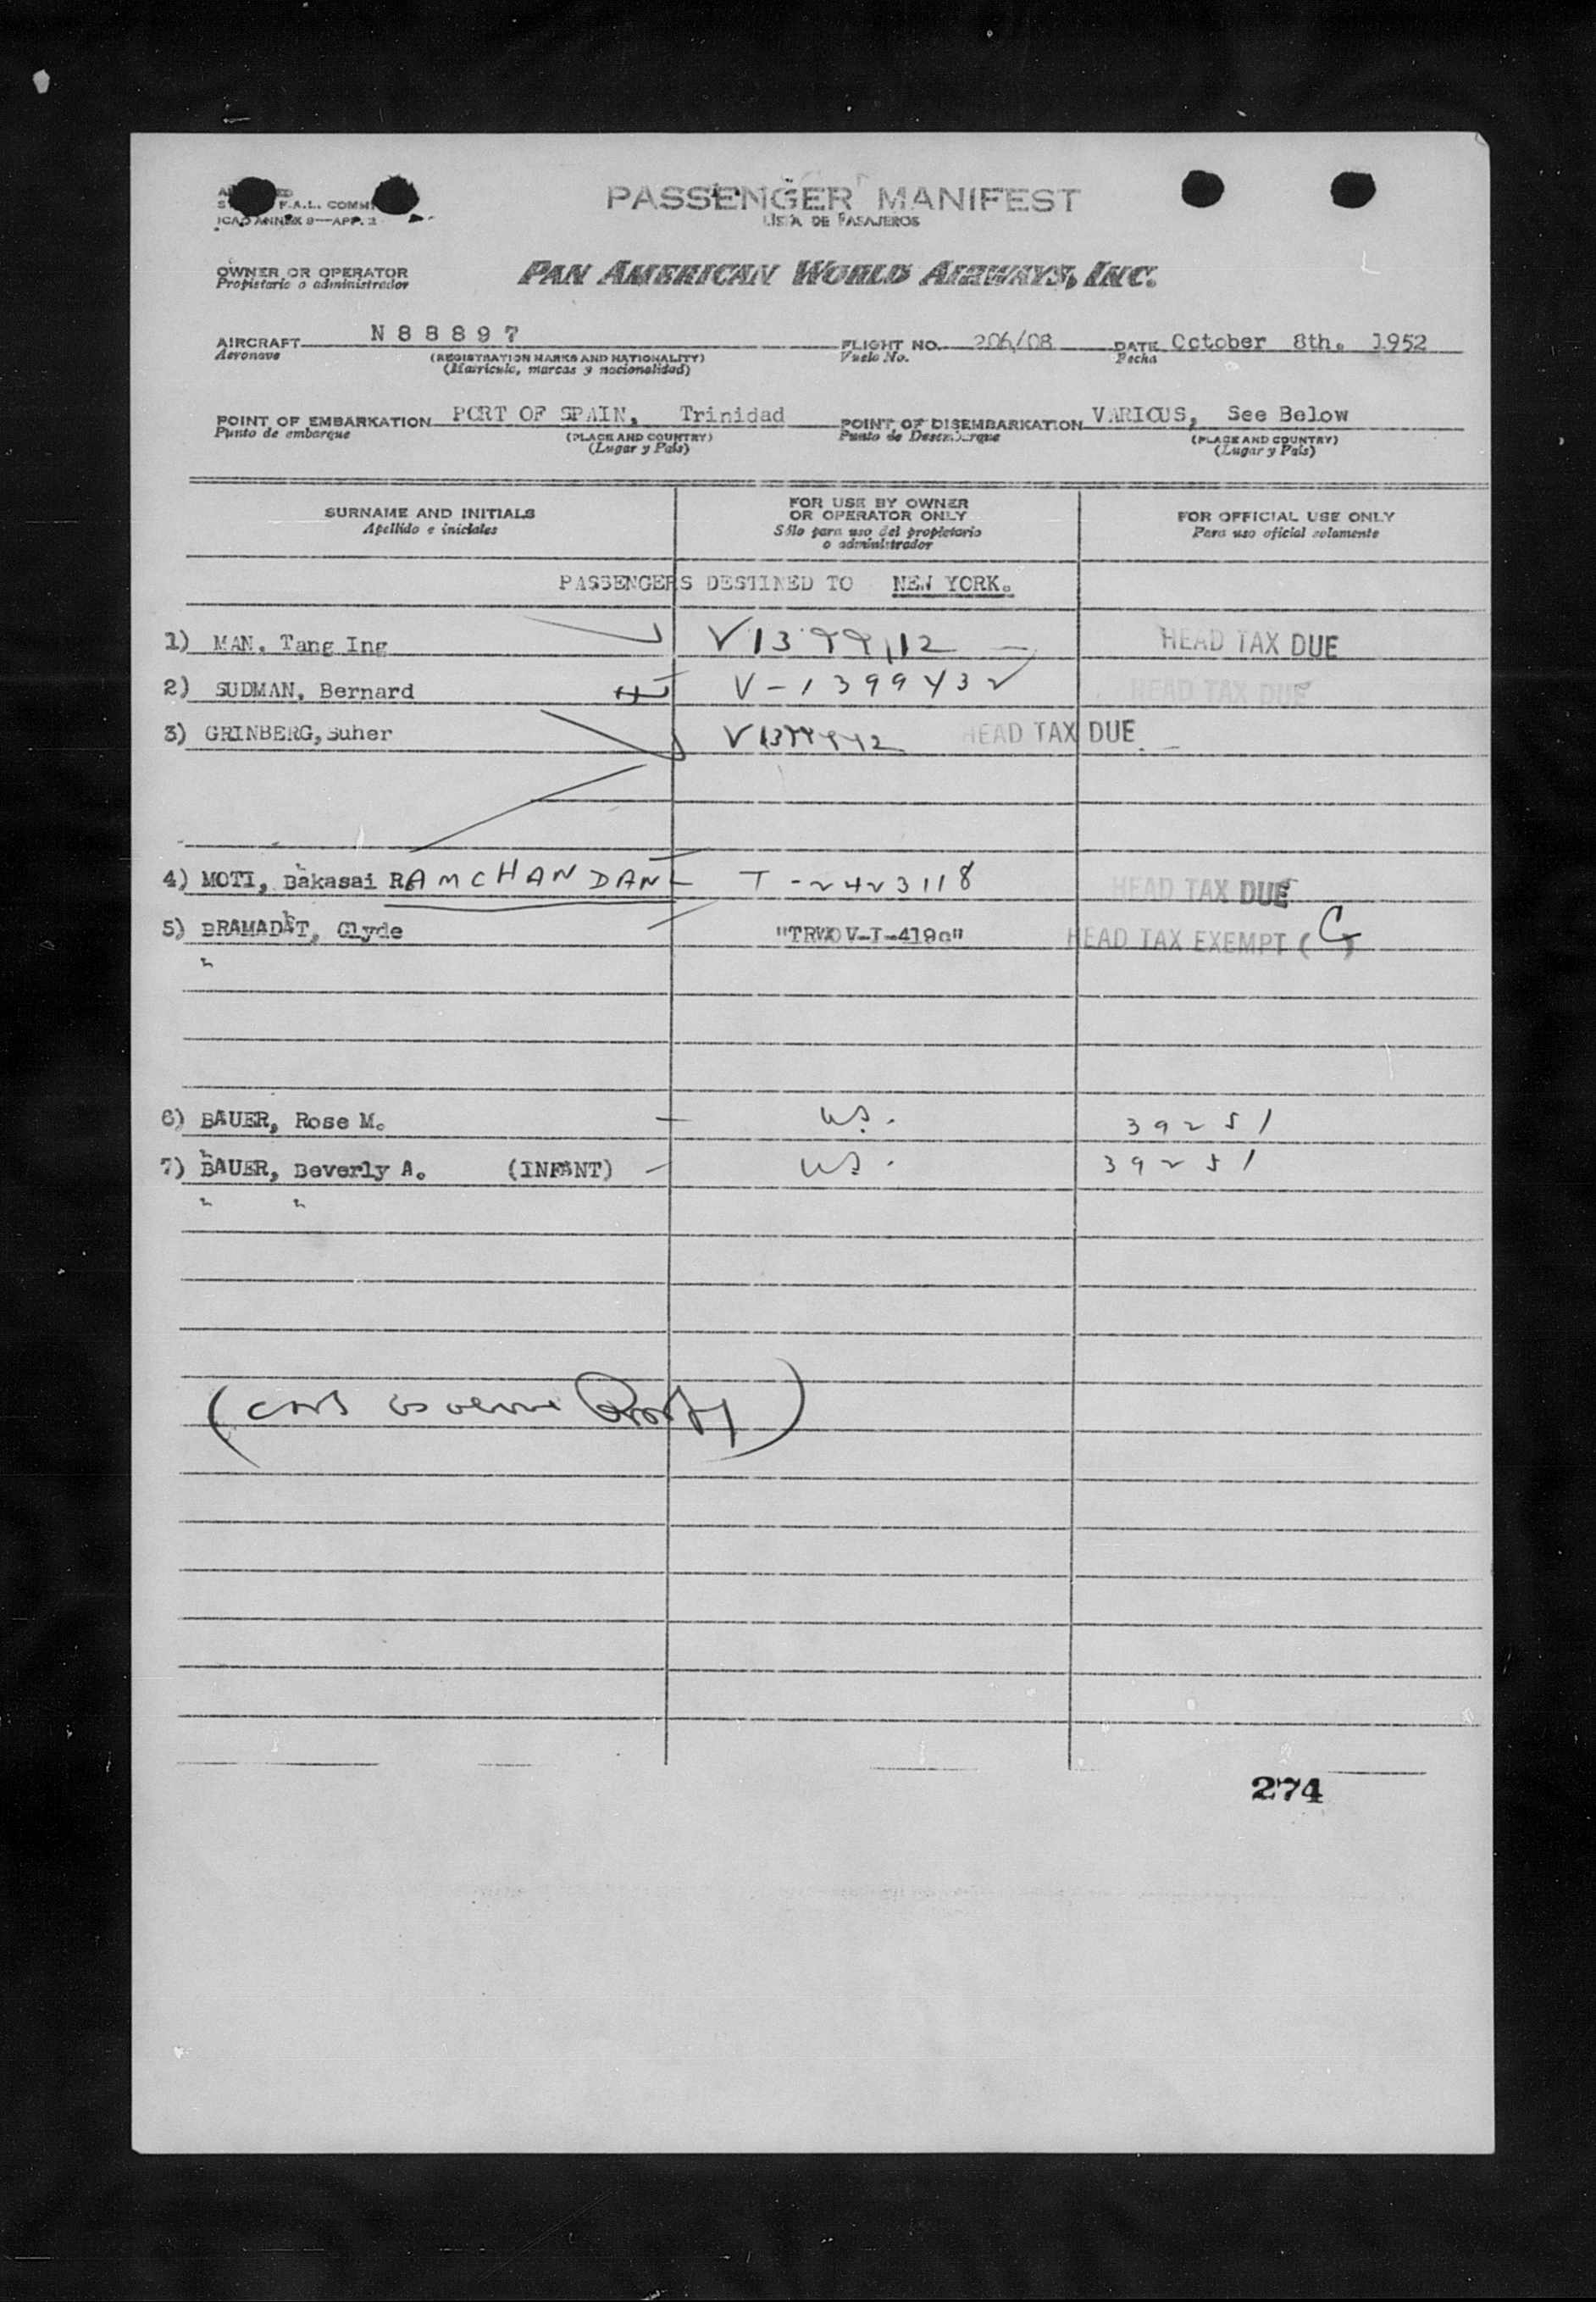 F.A.L. COMM
ICAO ANNEX 9—APP. 2
PASSENGER MANIFEST
LISTA DE PASAJEROS
OWNER OR OPERATOR
Propietario o administrador
PAN AMERICAN WORLD AIRWAYS, INC.
AIRCRAFT N 8 8 8 9 7 FLIGHT NO. 206/08 DATE October 8th. 1952
Aeronave (REGISTRATION MARKS AND NATIONALITY) Vuelo No. Fecha
(Matrícula, marcas y nacionalidad)
POINT OF EMBARKATION PORT OF SPAIN, Trinidad POINT OF DISEMBARKATION VARIOUS, See Below
Punto de embarque (PLACE AND COUNTRY) Punto de Desembarque (PLACE AND COUNTRY)
(Lugar y País) (Lugar y País)
SURNAME AND INITIALS FOR USE BY OWNER OR OPERATOR ONLY FOR OFFICIAL USE ONLY
Apellido e iniciales Sólo para uso del propietario o administrador Para uso oficial solamente
PASSENGERS DESTINED TO NEW YORK.
1) MAN, Tang Ing V1399112 HEAD TAX DUE
2) SUDMAN, Bernard V-1399432 HEAD TAX DUE
3) GRINBERG, Suher V1399442 HEAD TAX DUE
4) MOTI, Bakasai RAMCHANDANI T-2423118 HEAD TAX DUE
5) BRAMADAT, Clyde "TRWOV-I-419a" HEAD TAX EXEMPT (G)
"
6) BAUER, Rose M. US. 39251
7) BAUER, Beverly A. (INFANT) US. 39251
" "
274